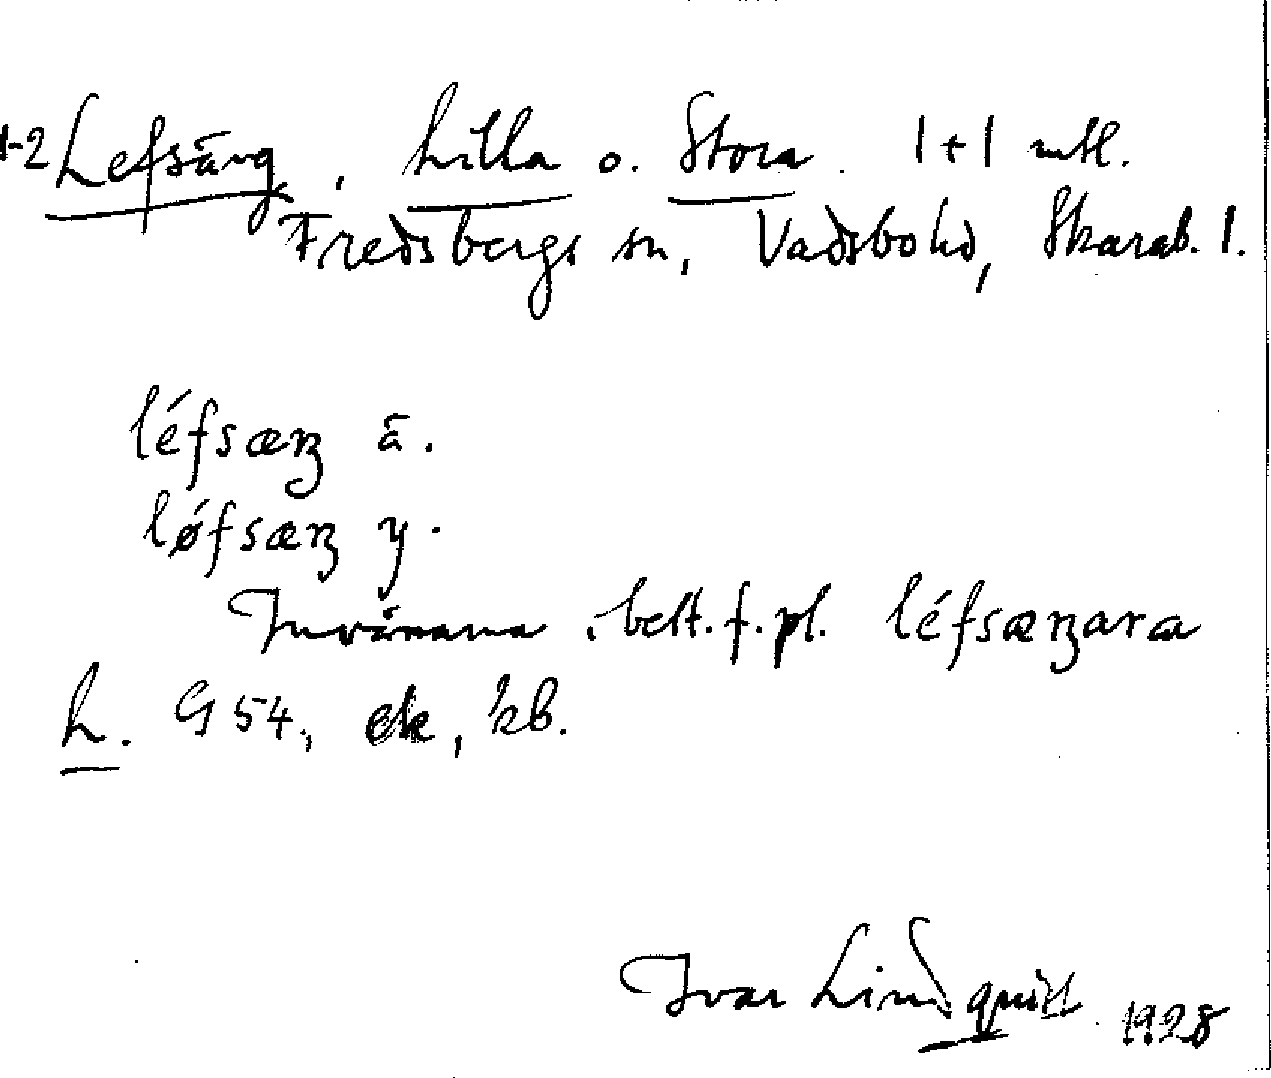 1-2 Lefsäng, Lilla o. Stora. 1+1 mtl.
Fredsbergs sn, Vadsbo hd, Skarab. l.
léfsæŋ ä.
lǿfsæŋ y.
Invånarna i best. f. pl. léfsæŋara
L. G 54, ek, kb.
Ivar Lindquist 1928